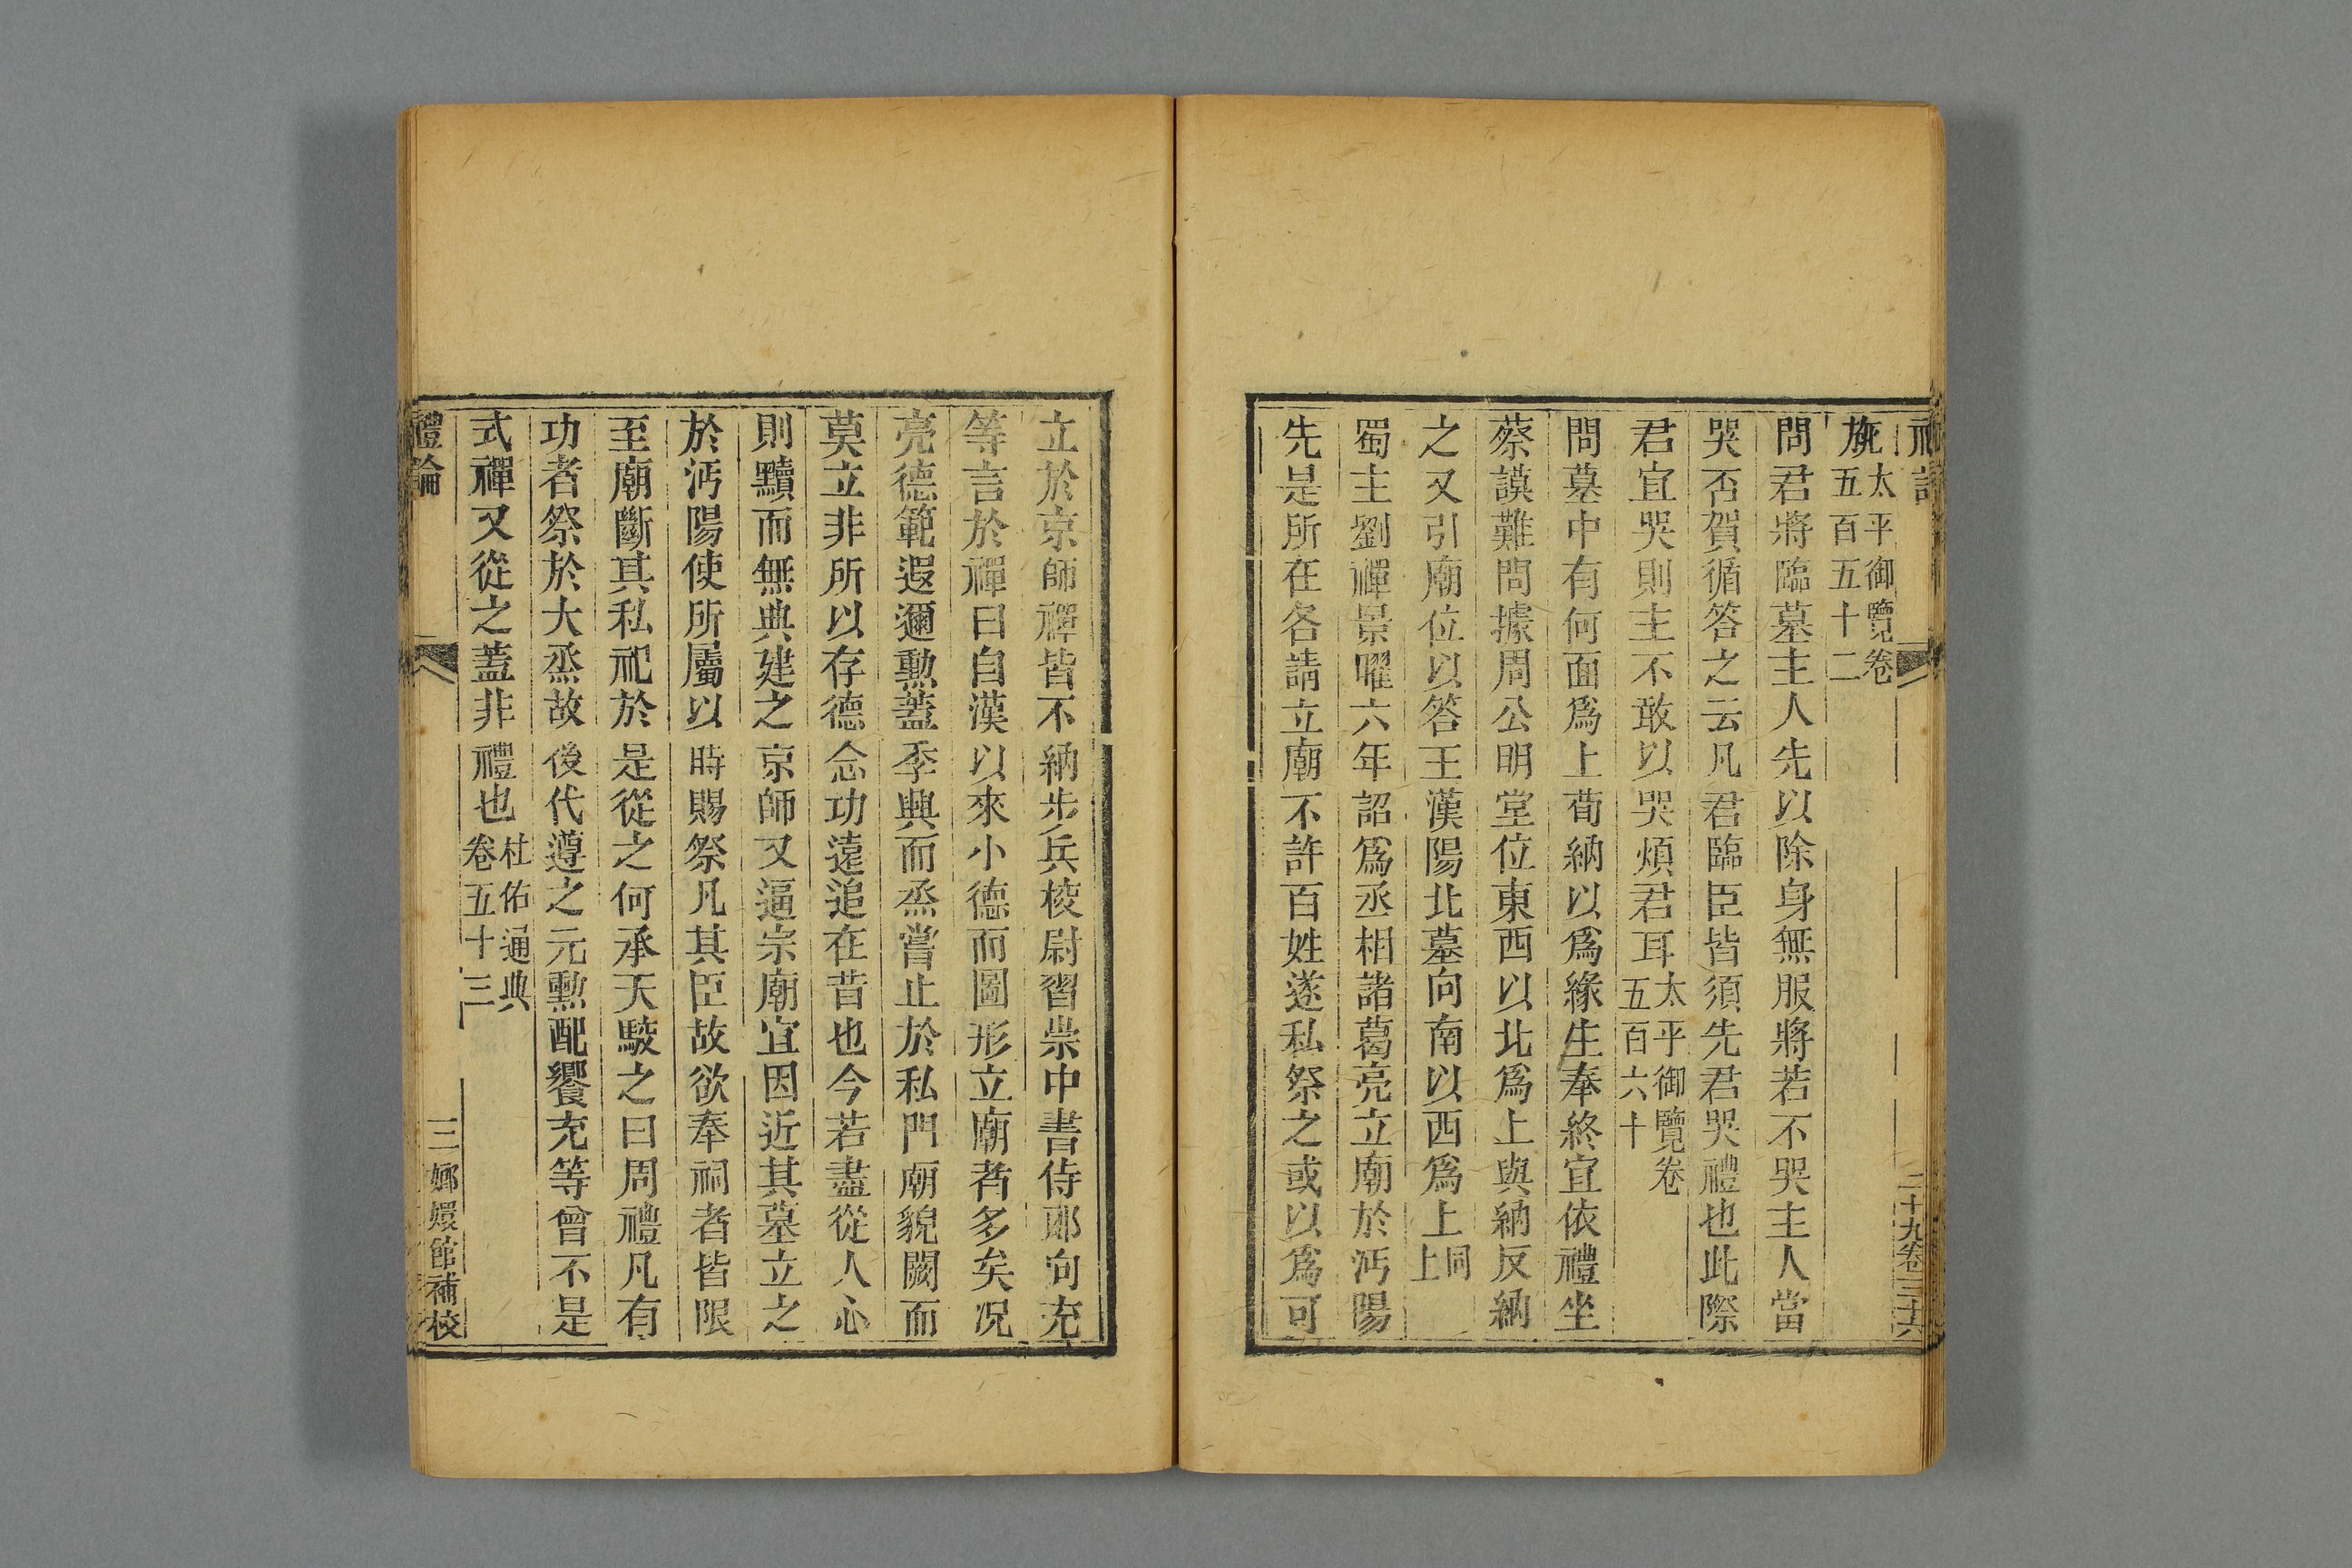 旐太平御覽卷五百五十二
問君將臨墓主人先以除身無服將若不哭主人當
哭否賀循答之云凡君臨臣皆須先君哭禮也此際
君宜哭則主不敢以哭煩君耳太平御覽卷五百六十
問墓中有何面爲上荀納以爲緣生奉終宜依禮坐
蔡謨難問據周公明堂位東西以北爲上與納反納
之又引廟位以答王漢陽北墓向南以西爲上同上
蜀主劉禪景曜六年詔爲丞相諸葛亮立廟於沔陽
先是所在各請立廟不許百姓遂私祭之或以爲可
立於京師禪皆不納步兵校尉習崇中書侍郎向充
等言於禪曰自漢以來小德而圖形立廟者多矣况
亮德範遐邇勲蓋季興而烝嘗止於私門廟貌闕而
莫立非所以存德念功遠追在昔也今若盡從人心
則黷而無典建之京師又逼宗廟宜因近其墓立之
於沔陽使所屬以時賜祭凡其臣故欲奉祠者皆限
至廟斷其私祀於是從之何承天駮之曰周禮凡有
功者祭於大烝故後代遵之元勲配饗充等曾不是
式禪又從之蓋非禮也杜佑通典卷五十三
禮論
三
嫏嬛館補校